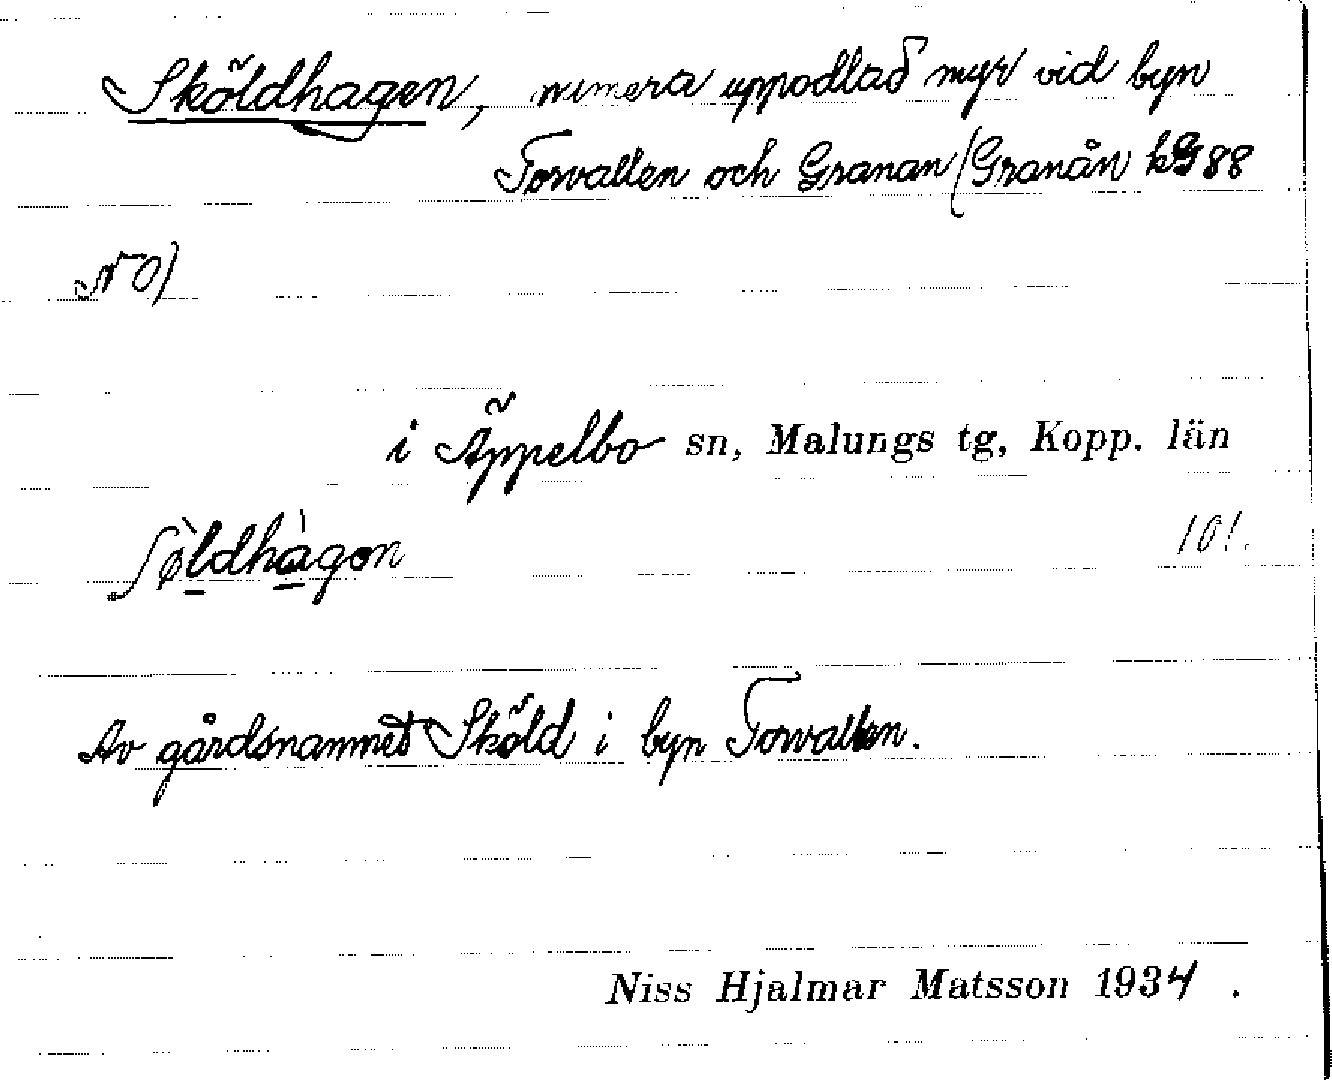 Sköldhagen, numera uppodlad myr vid byn
Torvallen och Granan (Granån kG 88
NO)
i Äppelbo sn, Malungs tg, Kopp. län
ʃø̀ldhàgon
101.
Av gårdsnamnet Sköld i byn Torvallen.
Niss Hjalmar Matsson 1934 .